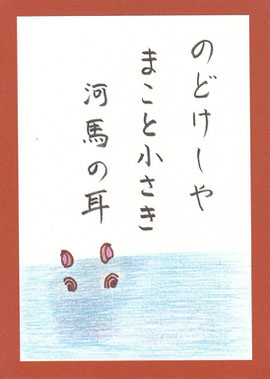 のどけしや
まこと小さき
河馬の耳